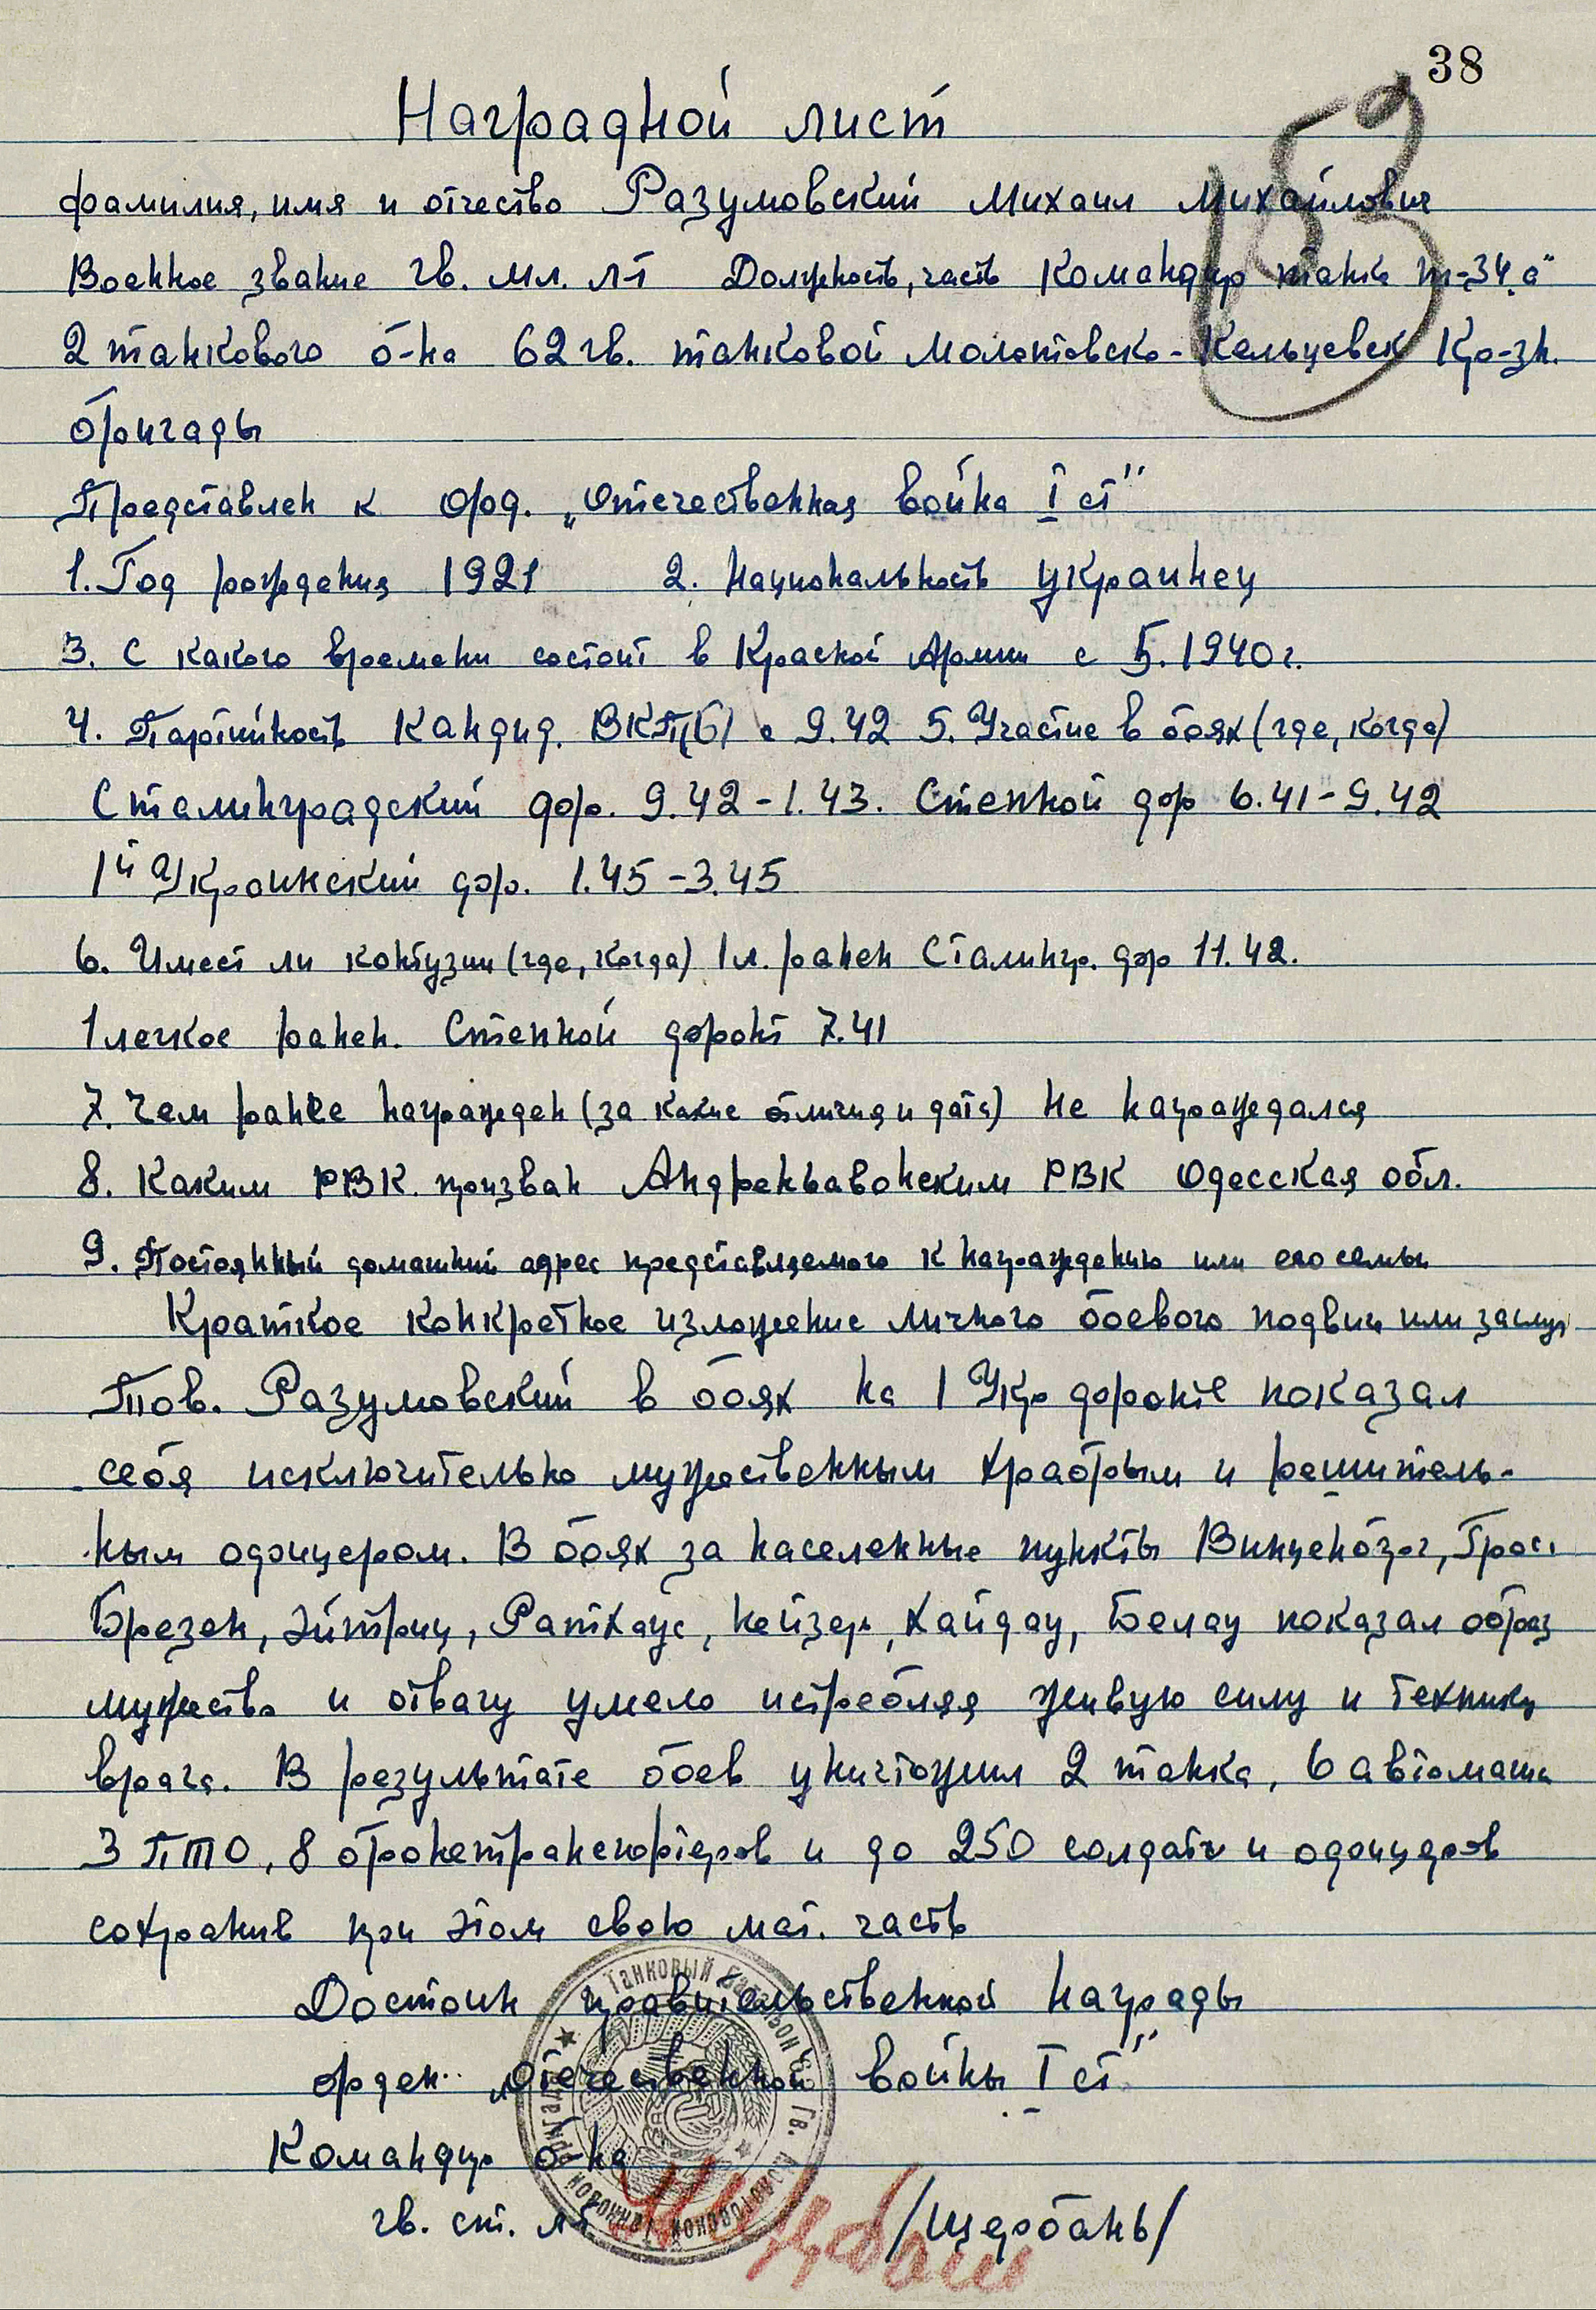 38
153
Наградной лист
фамилия, имя и отчество Разумовский Михаил Михайлович
Военное звание гв. мл. л-т Должность, часть Командир танка Т-34
2 танкового б-на 62 гв. танковой Молотовско-Кельцевск Кр-зн.
бригады
Представлен к орд. „Отечественная война I ст"
1. Год рождения 1921 2. Национальность украинец
3. С какого времени состоит в Красной Армии с 5.1940г.
4. Партийность Кандид. ВКП(б) с 9.42 5. Участие в боях (где, когда)
Сталинградский фр. 9.42-1.43. Степной фр 6.41-9.42
1й Украинский фр. 1.45-3.45
6. Имеет ли контузии (где, когда) 1 л. ранен Сталингр. фр 11.42.
1 легкое ранен. Степной фронт 7.41
7. Чем ранее награжден (за какие отличия и дата) Не награждался
8. Каким РВК призван Андреньавонским РВК Одесская обл.
9. Постоянный домашний адрес представляемого к награждению или его семьи
Краткое конкретное изложение личного боевого подвига или заслуг
Тов. Разумовский в боях на 1 Укр фронте показал
себя исключительно мужественным храбрым и решитель-
ным офицером. В боях за населенные пункты Винценбзог, Грос.
Брезен, Эйтриц, Ратхаус, Нейзер, Хайдау, Белау показал образ
мужества и отвагу умело истребляя живую силу и технику
врага. В результате боев уничтожил 2 танка, 6 автомаши
3 ПТО, 8 бронетранспортеров и до 250 солдат и офицеров
сохранив при этом свою мат. часть
Достоин правительственной награды
орден „Отечественной войны I ст"
Командир б-на
гв. ст. л-т /Щербань/